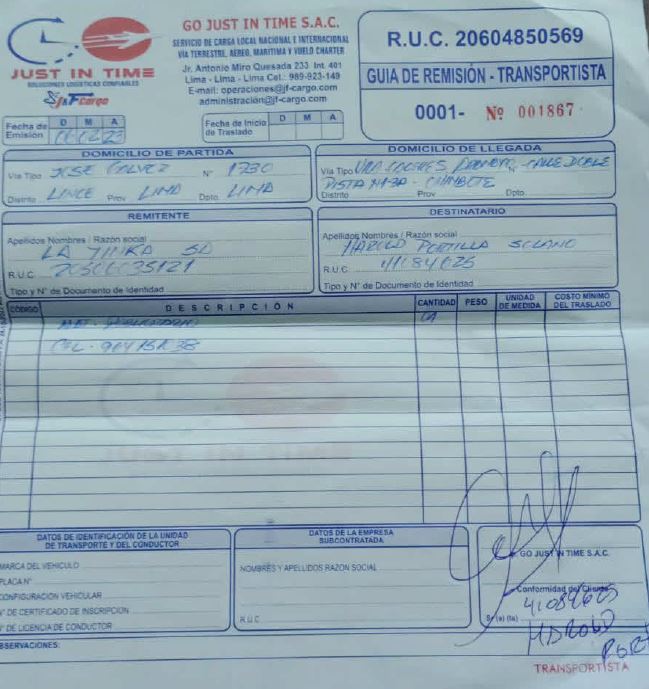 JUST IN TIME
SOLUCIONES LOGÍSTICAS CONFIABLES
J&F Cargo
GO JUST IN TIME S.A.C.
SERVICIO DE CARGA LOCAL NACIONAL E INTERNACIONAL
VÍA TERRESTRE, AEREO, MARITIMA Y VUELO CHARTER
Jr. Antonio Miro Quesada 233 Int. 401
Lima - Lima - Lima Cel.: 989-923-149
E-mail: operaciones@jf-cargo.com
administración@jf-cargo.com
R.U.C. 20604850569
GUIA DE REMISIÓN - TRANSPORTISTA
0001- Nº 001867
Fecha de Emisión D M A
Fecha de Inicio de Traslado D M A
DOMICILIO DE PARTIDA
Vía Tipo JOSE GALVEZ Nº 1730
Distrito LINCE Prov LIMA Dpto LIMA
DOMICILIO DE LLEGADA
Vía Tipo CALLE DOBLE Nº
PISTA CHIMBOTE
Distrito Prov Dpto.
REMITENTE
Apellidos Nombres / Razón social
LA TINKA SA
R.U.C. 20506035121
Tipo y Nº de Documento de Identidad
DESTINATARIO
Apellidos Nombres / Razón social
HAROLD PORTILLA SOLANO
R.U.C. 41084625
Tipo y Nº de Documento de Identidad
CÓDIGO DESCRIPCIÓN CANTIDAD PESO UNIDAD DE MEDIDA COSTO MÍNIMO DEL TRASLADO
CEL -
DATOS DE IDENTIFICACIÓN DE LA UNIDAD
DE TRANSPORTE Y DEL CONDUCTOR
MARCA DEL VEHICULO
PLACA Nº
CONFIGURACION VEHICULAR
Nº DE CERTIFICADO DE INSCRIPCIÓN
Nº DE LICENCIA DE CONDUCTOR
DATOS DE LA EMPRESA
SUBCONTRATADA
NOMBRES Y APELLIDOS RAZON SOCIAL
R.U.C.
GO JUST IN TIME S.A.C.
Conformidad del Cliente
41084625
Sr (a) (ta)
HAROLD
PORT
OBSERVACIONES:
TRANSPORTISTA